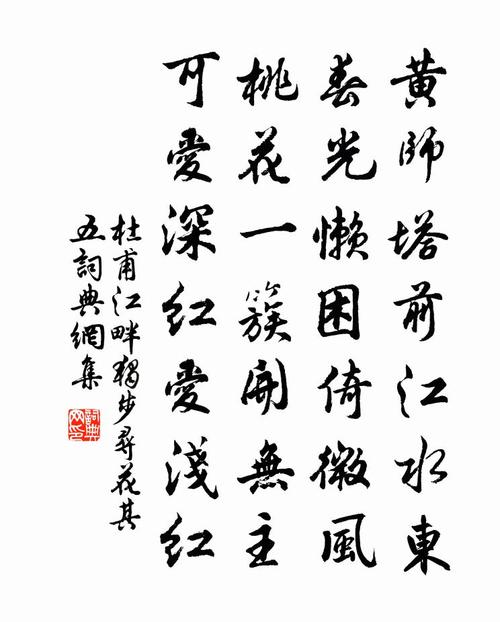 黄師塔前江水東
春光懶困倚微風
桃花一簇開無主
可愛深紅愛淺紅
杜甫江畔獨步尋花其
五詞典網集